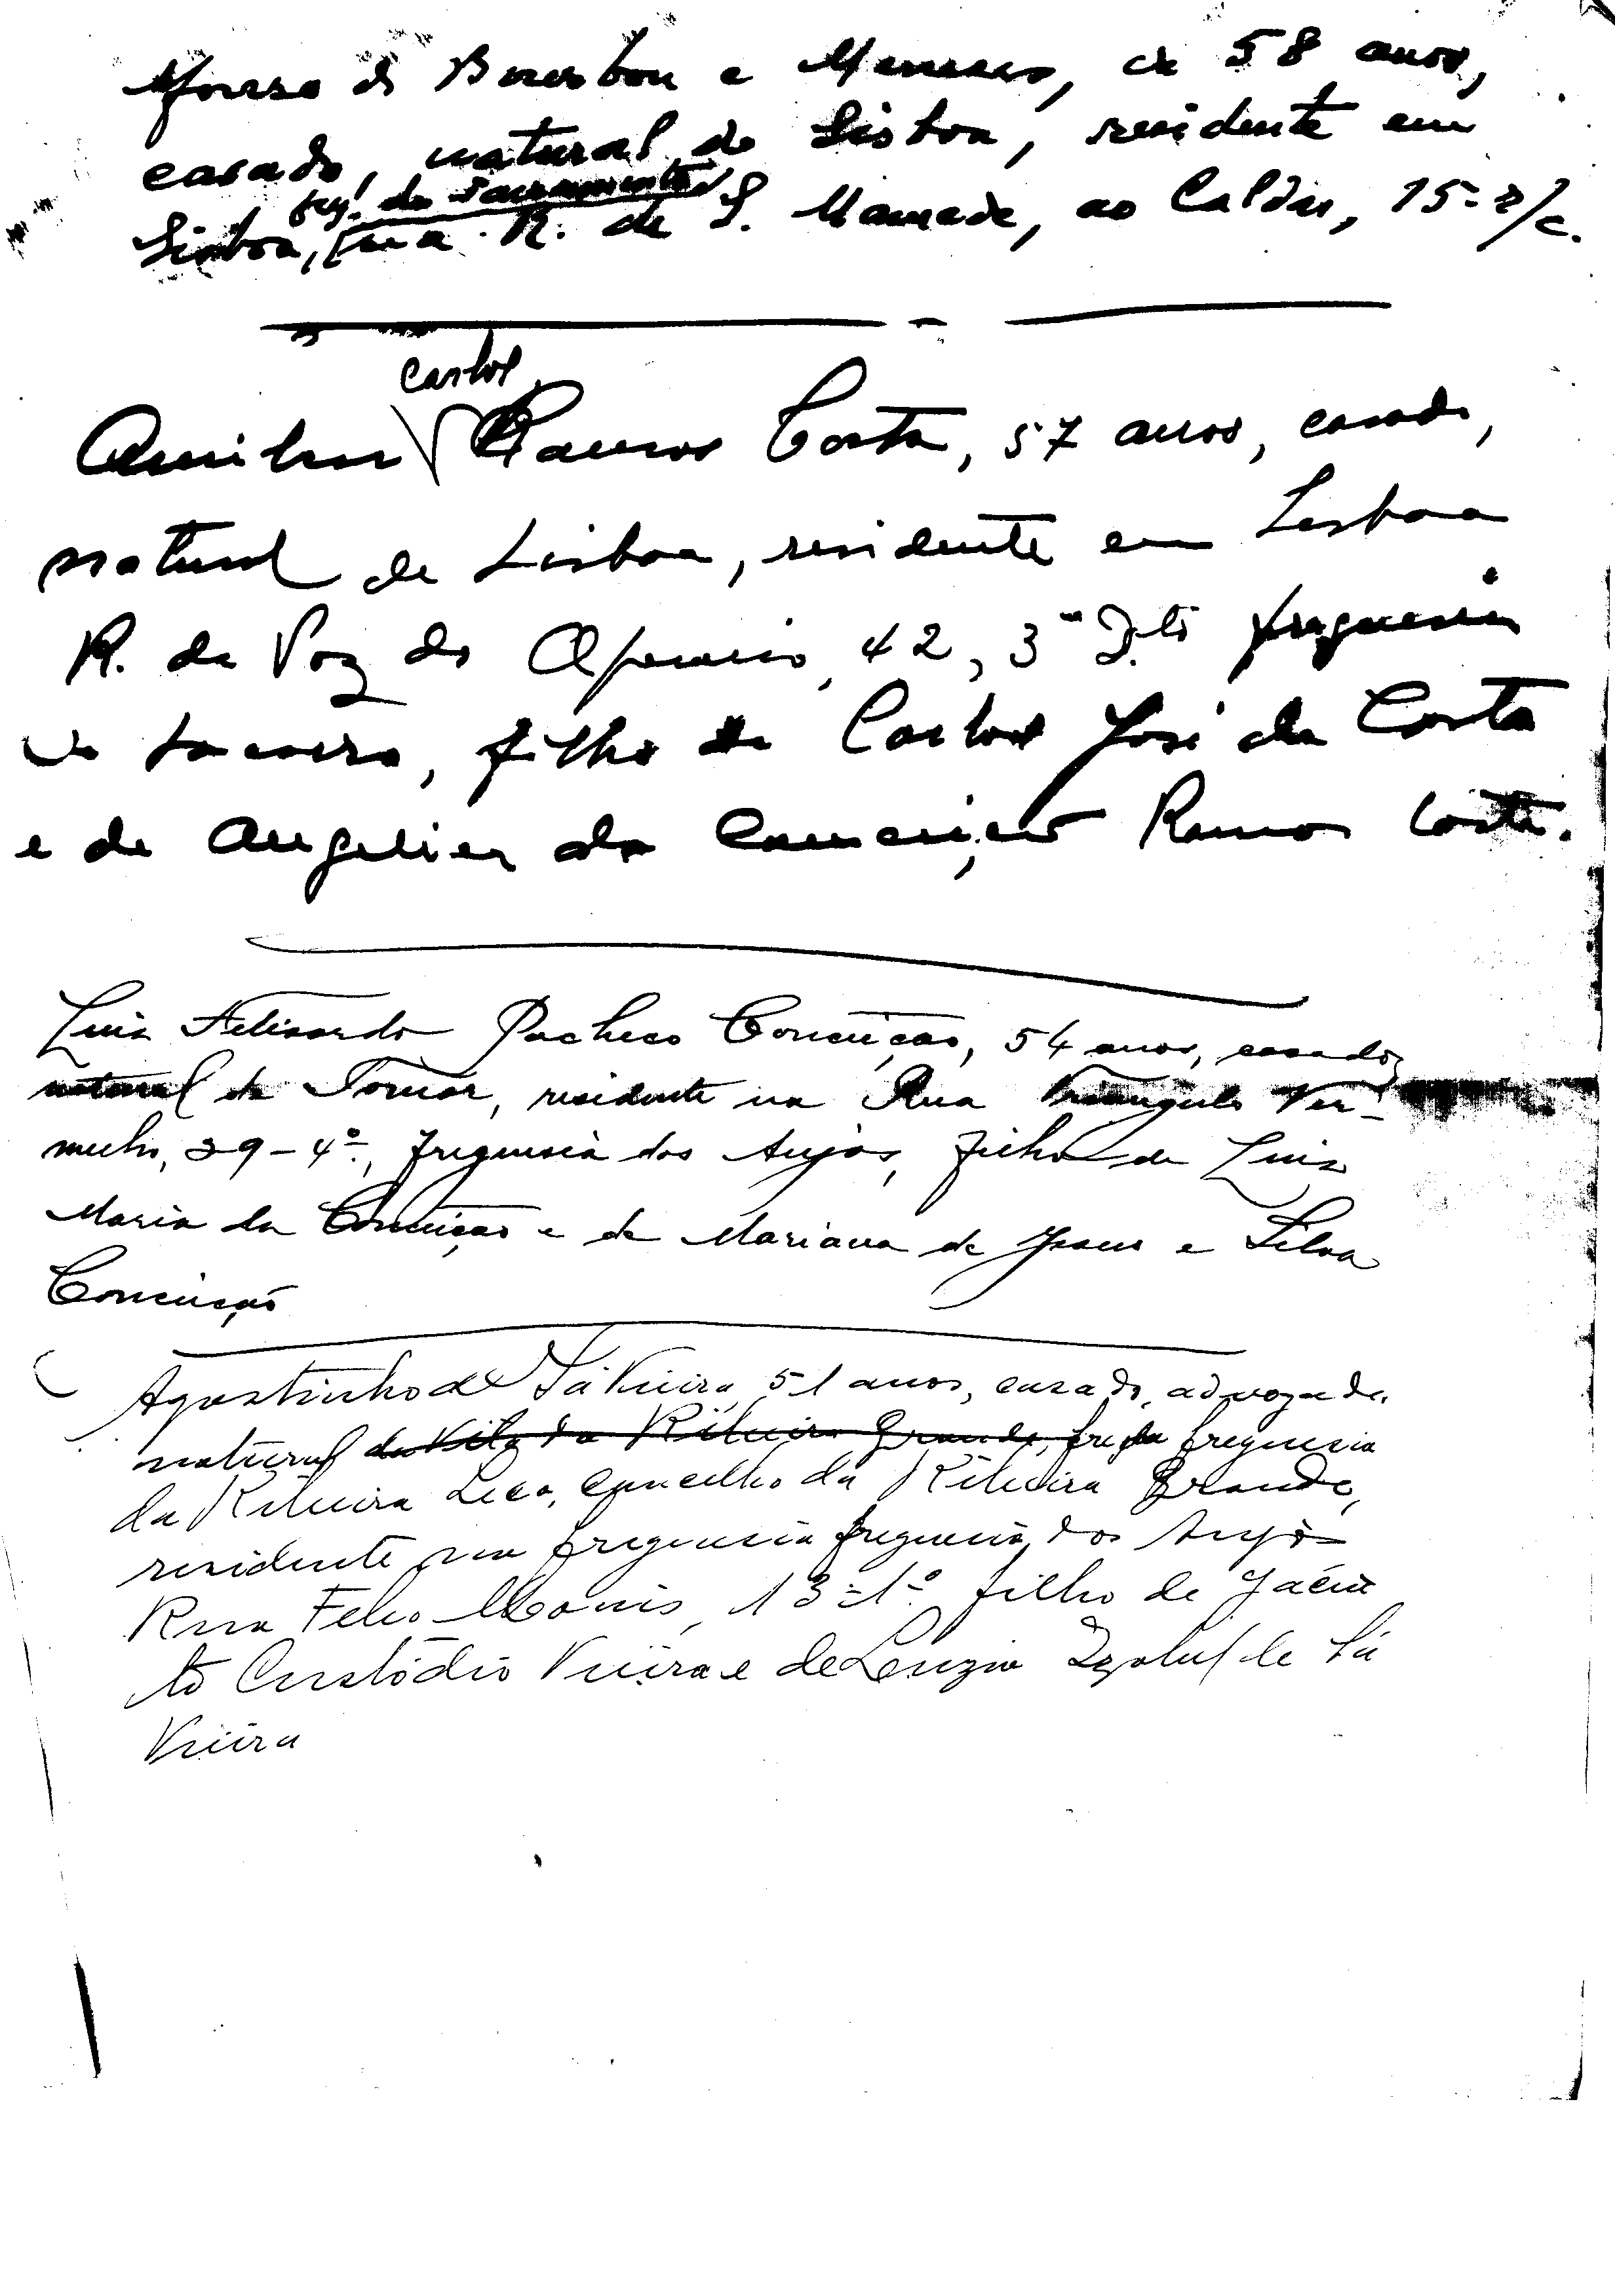 Afonso de Bourbon e Meneses, de 58 anos,
casado, natural de Lisboa, residente em
freg. do Sacramento
Lisboa, na R. de S. Mamede, ao Caldas, 15-r/c.
Carlos
Amilcar Ramos Costa, 57 anos, casado,
natural de Lisboa, residente em Lisboa
R. da Voz do Operario, 42, 3º D.to freguesia
da Graça, filho de Carlos José da Costa
e de Angelina da Conceição Ramos Costa.
Luis Felisardo Pacheco Conceição, 54 anos, casado,
natural de Tomar, residente na Rua Triangulo Ver-
melho, 29-4º, freguesia dos Anjos, filho de Luis
Maria da Conceição e de Mariana de Jesus e Silva
Conceição
Agostinho de Sá Vieira, 51 anos, casado, advogado,
natural da Vila da Ribeira Grande, freg da freguesia
da Ribeira Seca, concelho da Ribeira Grande,
residente na freguesia freguesia dos Anjos
Rua Febo Moniz, 13-1º filho de Jacin
to Custódio Vieira e de Luzia Izabel de Sá
Vieira